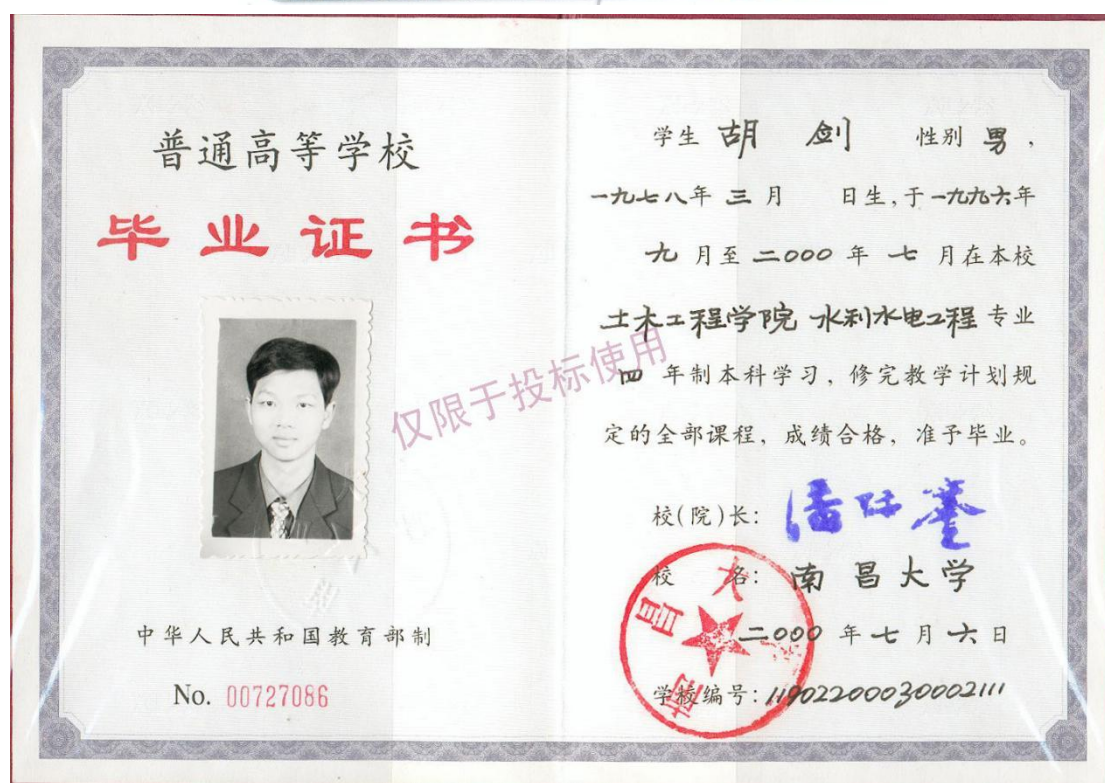 普通高等学校
毕业证书
中华人民共和国教育部制
No. 00727086
学生 胡 剑 性别 男,
一九七八年 三 月 日生,于一九九六年
九 月至 二000 年 七 月在本校
土木工程学院 水利水电工程 专业
四 年制本科学习,修完教学计划规
定的全部课程,成绩合格,准予毕业。
校(院)长:
校 名: 南昌大学
二000 年 七 月 六 日
学校编号:11902200030002111
仅限于投标使用
南昌大